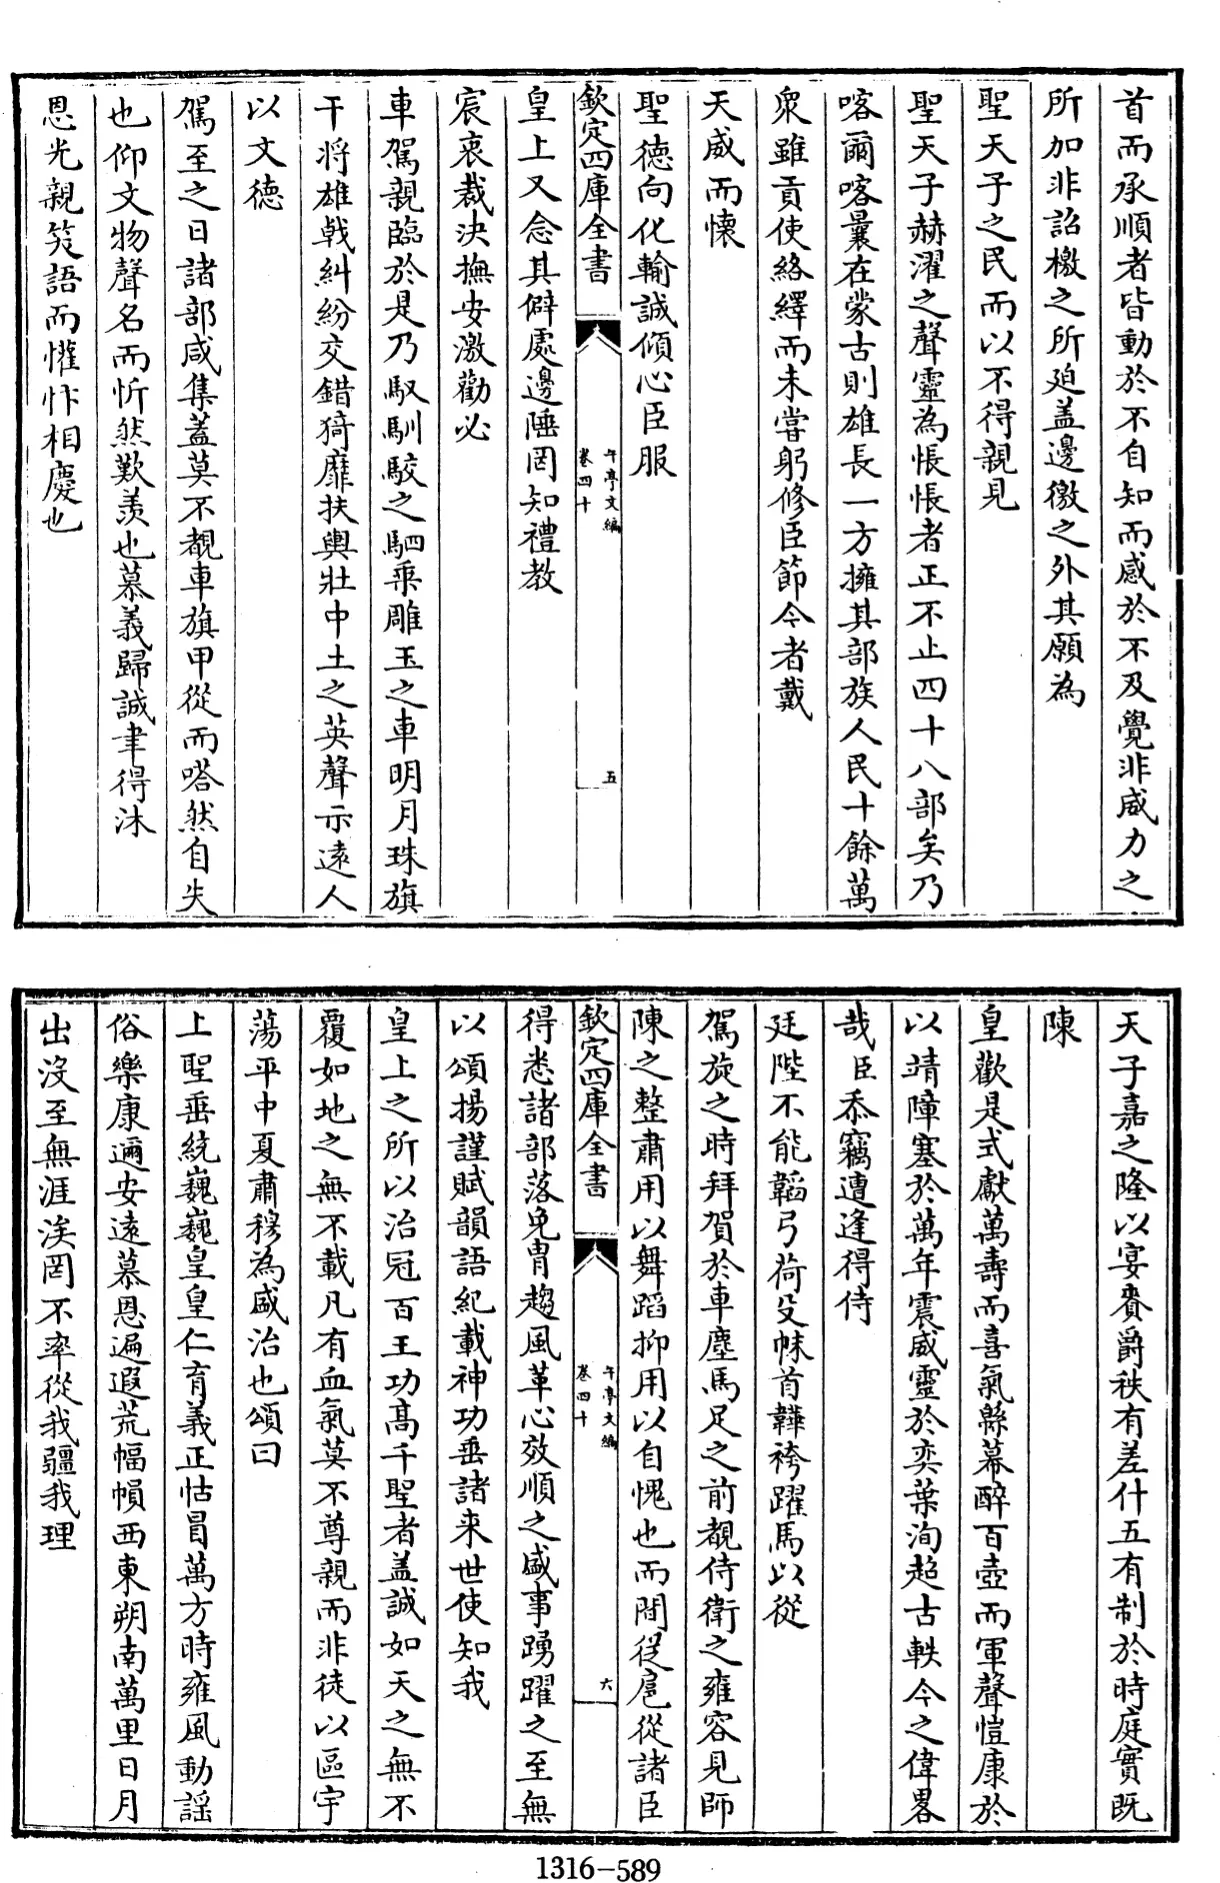 首而承順者皆動於不自知而感於不及覺非威力之
所加非詔檄之所廹盖邊徼之外其願為
聖天子之民而以不得親見
聖天子赫濯之聲靈為悵悵者正不止四十八部矣乃
喀爾喀曩在蒙古則雄長一方擁其部族人民十餘萬
衆雖貢使絡繹而未嘗躬修臣節今者戴
天威而懐
聖德向化輸誠傾心臣服
欽定四庫全書
午亭文編
卷四十
五
皇上又念其僻處邊陲罔知禮教
宸衷裁決撫安激勸必
車駕親臨於是乃馭馴駮之駟乗雕玉之車明月珠旗
干將雄㦸糾紛交錯猗靡扶輿壯中土之英聲示逺人
以文德
駕至之日諸部咸集蓋莫不覩車旗甲從而嗒然自失
也仰文物聲名而忻然歎羨也慕義歸誠聿得沐
恩光親笑語而懽忭相慶也
天子嘉之隆以宴賚爵秩有差什五有制於時庭實既
陳
皇歡是式獻萬壽而喜氣緜幕醉百壺而軍聲愷康於
以靖障塞於萬年震威靈於奕葉洵超古軼今之偉畧
哉臣忝竊遭逢得侍
廷陛不能韜弓荷殳帓首鞾袴躍馬以從
駕旋之時拜賀於車塵馬足之前覩侍衛之雍容見師
陳之整肅用以舞蹈抑用以自愧也而間從扈從諸臣
欽定四庫全書
午亭文編
卷四十
六
得悉諸部落免胄趨風革心效順之盛事踴躍之至無
以頌揚謹賦韻語紀載神功垂諸来世使知我
皇上之所以治冠百王功髙千聖者盖誠如天之無不
覆如地之無不載凡有血氣莫不尊親而非徒以區宇
蕩平中夏肅穆為盛治也頌曰
上聖垂統巍巍皇皇仁育義正怙冒萬方時雍風動謡
俗樂康邇安逺慕恩遍遐荒幅幀西東朔南萬里日月
出没至無涯涘罔不率從我疆我理
1316-589